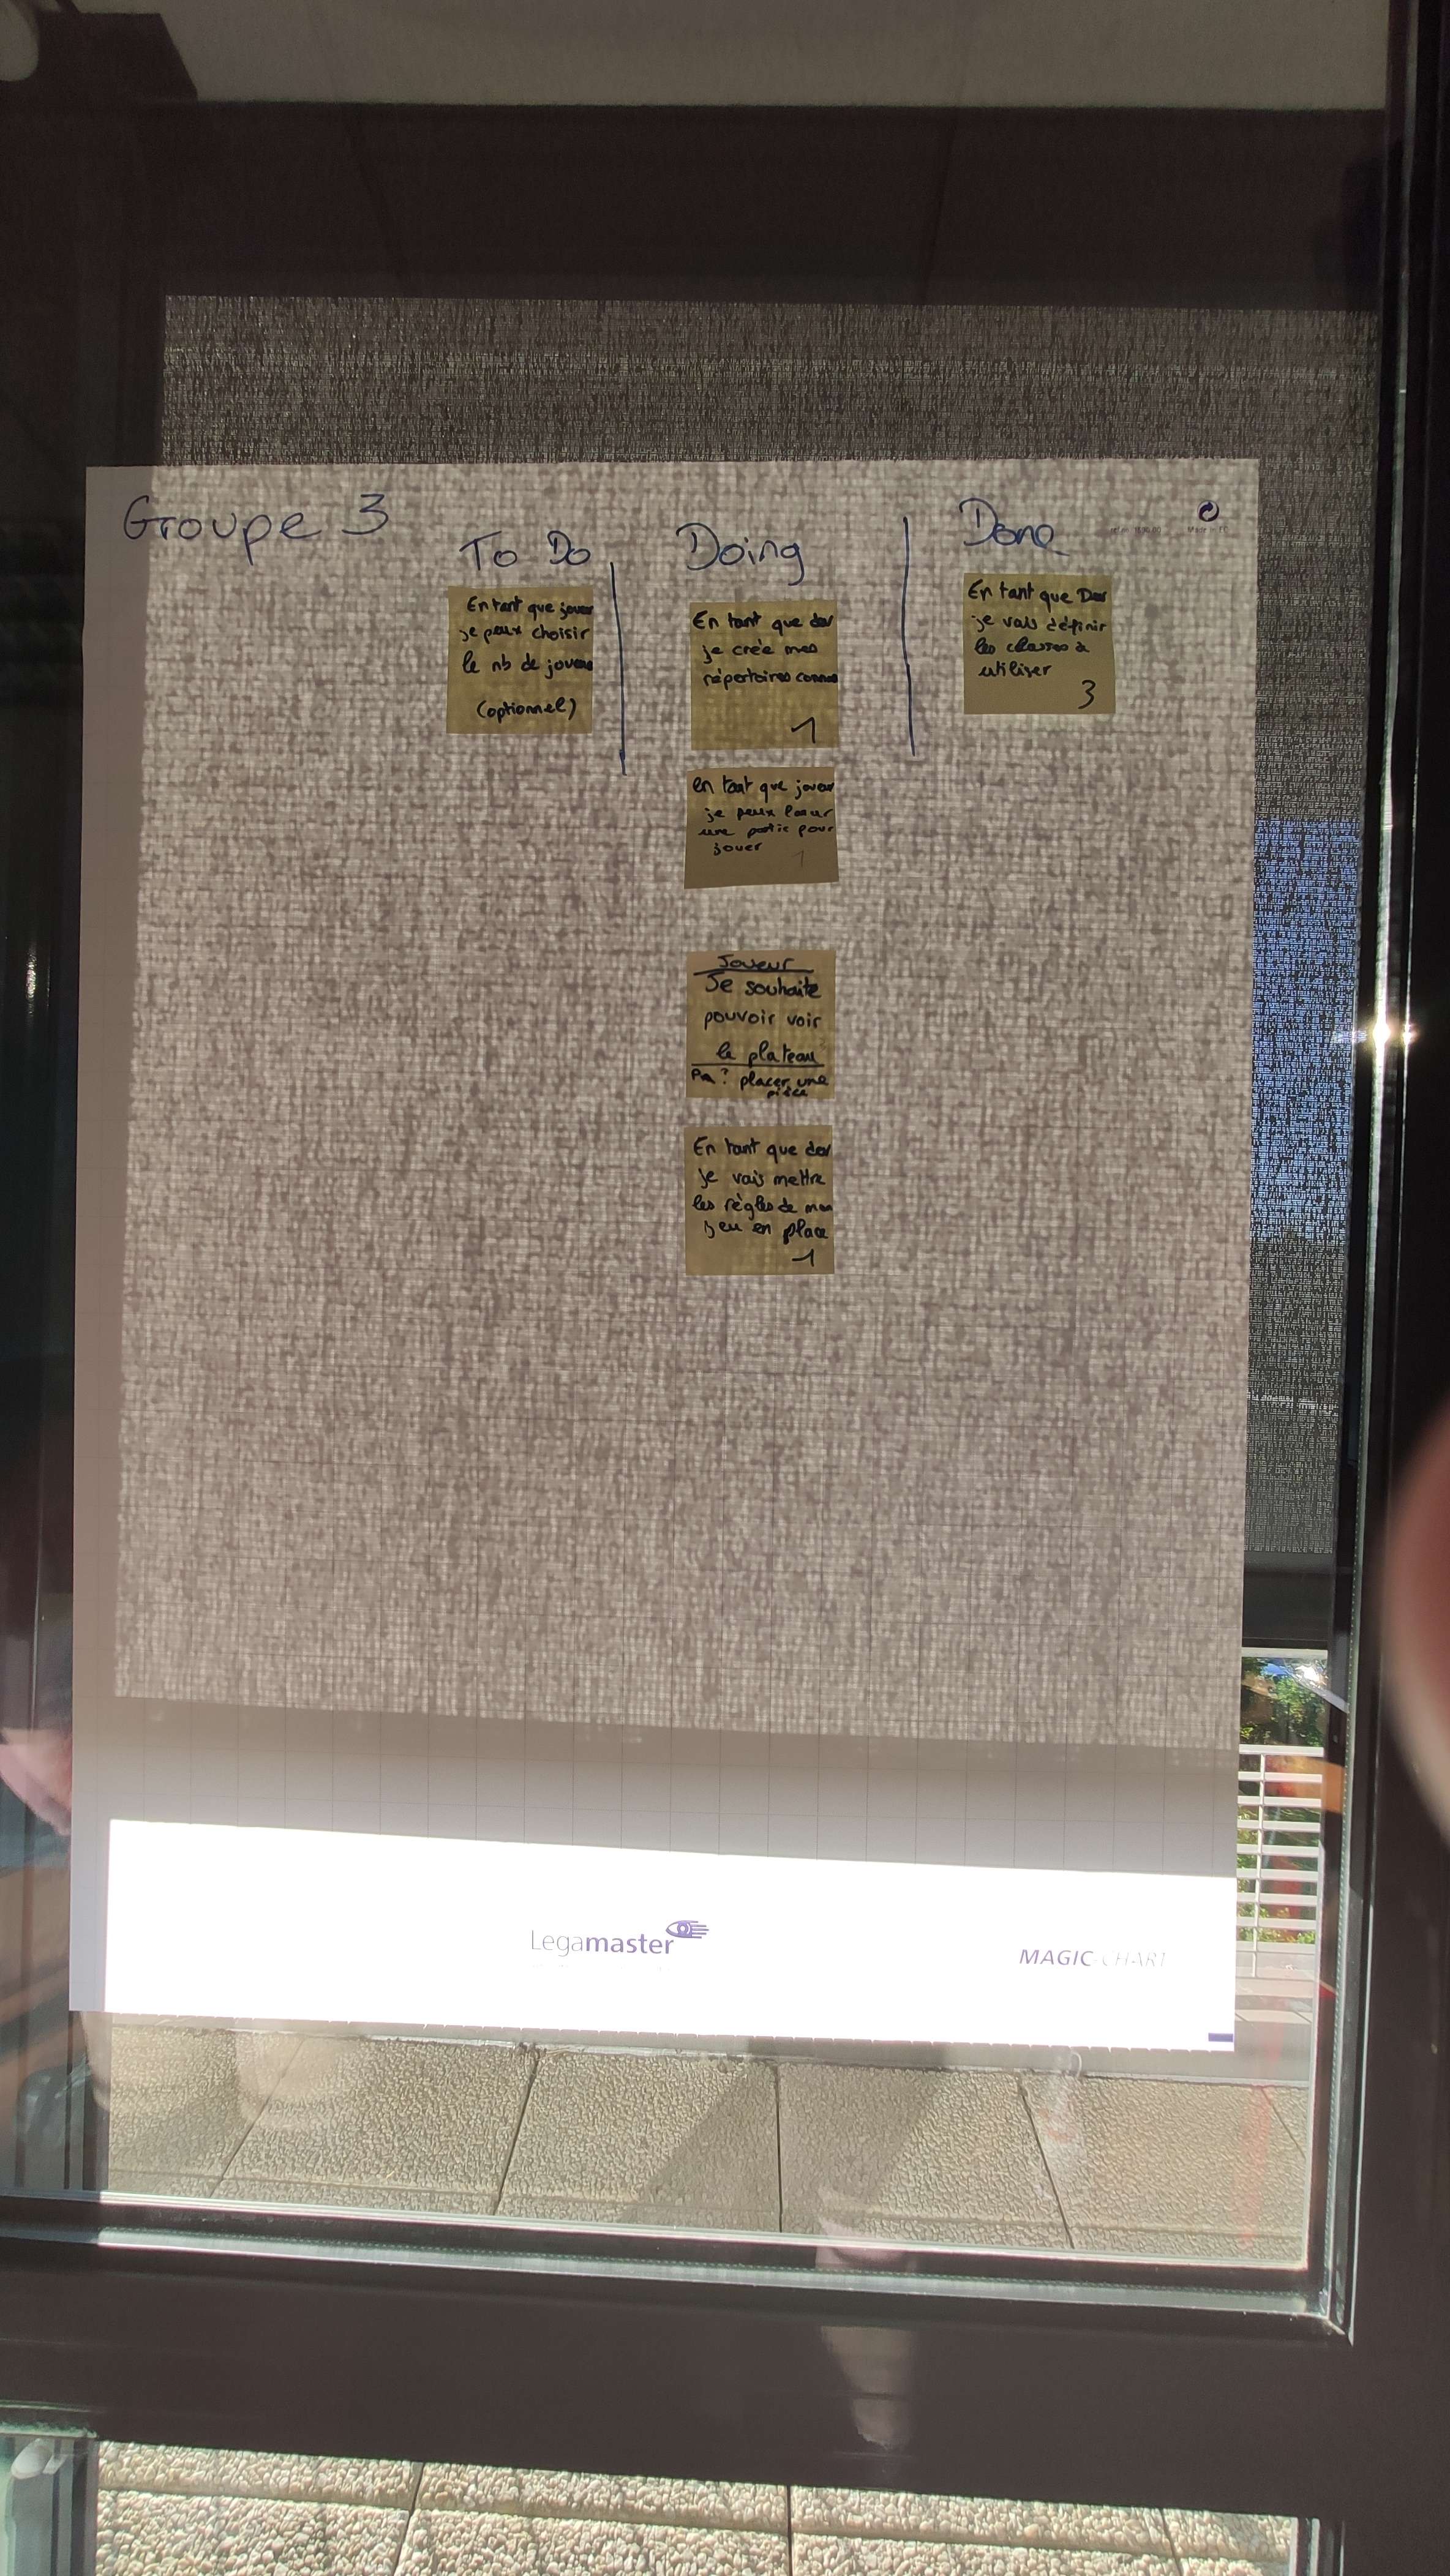 Groupe 3
To Do
En tant que joueur
je peux choisir
le nb de joueurs
(optionnel)
Doing
En tant que dev
je crée mes
répertoires
1
en tant que joueur
je peux
une partie pour
jouer
1
Joueur
Je souhaite
pouvoir voir
le plateau
? placer une
pièce
En tant que dev
je vais mettre
les règles de mon
jeu en place
1
Done
En tant que Dev
je vais définir
les classes à
utiliser
3
Made in EC
Legamaster
MAGIC-CHART